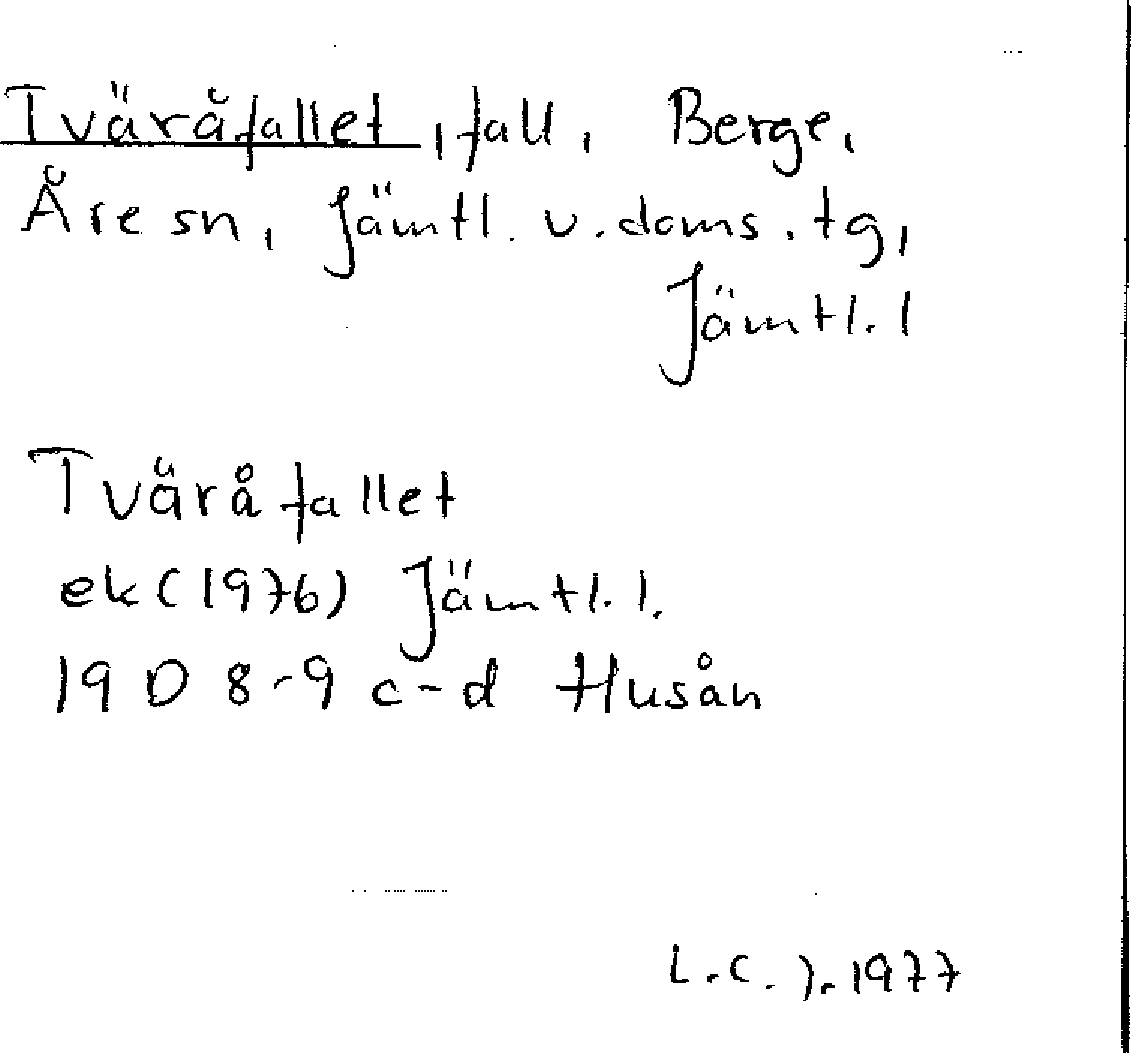 Tväråfallet, fall, Berge,
Åre sn, Jämtl. v. doms. tg,
Jämtl. l
Tväråfallet
ek (1976) Jämtl. l.
19 D 8-9 c-d Husån
L.C. J. 1977